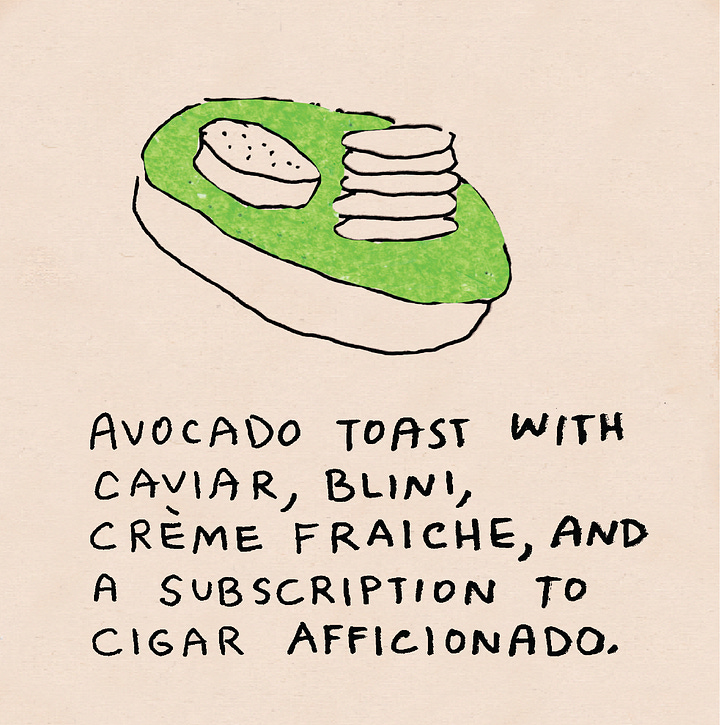 AVOCADO TOAST WITH
CAVIAR, BLINI,
CRÈME FRAICHE, AND
A SUBSCRIPTION TO
CIGAR AFFICIONADO.